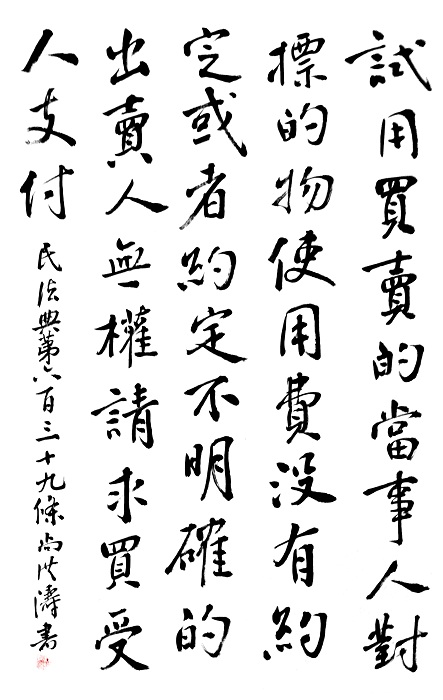 試用買賣的當事人對
標的物使用費没有約
定或者約定不明確的
出賣人無權請求買受
人支付
民法典第六百三十九條尚洪濤書